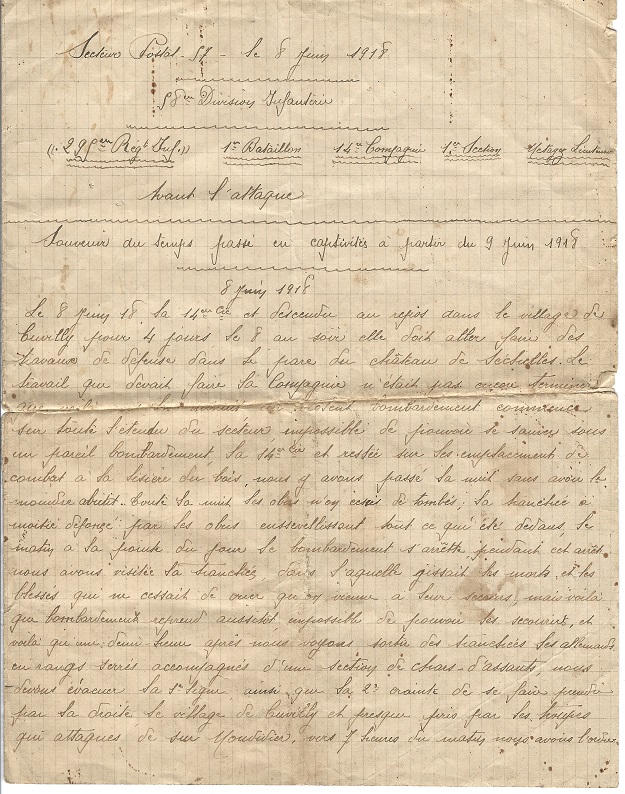 Secteur Postal - le 8 Juin 1918
58em Division Infanterie
(( 295em Régt Inf. )) 1er Bataillon 14em Compagnie 1ere Section Lieutenant
Avant l'attaque
Souvenir du temps passé en captivités à partir du 9 Juin 1918
8 Juin 1918
Le 8 Juin 18 la 14em Cie et descendu au repos dans le village de
Cuvilly pour 4 jours le 8 au soir elle doit aller faire des
travaux de défense dans le parc du château de Sechelles. Le
travail que devait faire la Compagnie n'était pas encore terminé
bombardement commence
sur toute l'étendu du secteur impossible de pouvoir se sauver sous
un pareil bombardement, la 14em Cie et restée sur ses emplacement de
combat a la lisière du bois, nous y avons passé la nuit sans avoir le
moindre abri. Toute la nuit les obus n'oy cessés de tombés, la tranchée a
moitié déforcé par les obus enssevelissant tout ce qui été dedans, le
matin a la pointe du jour le bombardement s'arrette pendant cet arrêt
nous avons visitée la tranchée, dans l'aquelle gissait les morts et les
blessés qui ne cessait de crier qu'oy vienne a leur secours, mais voilà
que bombardement reprend aussitôt impossible de pouvoir les secourir, et
voilà qu'une demi heure après nous voyons sortir des tranchées les allemands
en rangs serrés accompagnés d'une section de chars-d'assauts, nous
devons évacuer la 1e ligne ainsi que la 2e crainte de se faire prendre
par la droite le village de Cuvilly et presque pris par les troupes
qui attaques de sur Mondidier, vers 7 heures du matin nous avons l'ordre